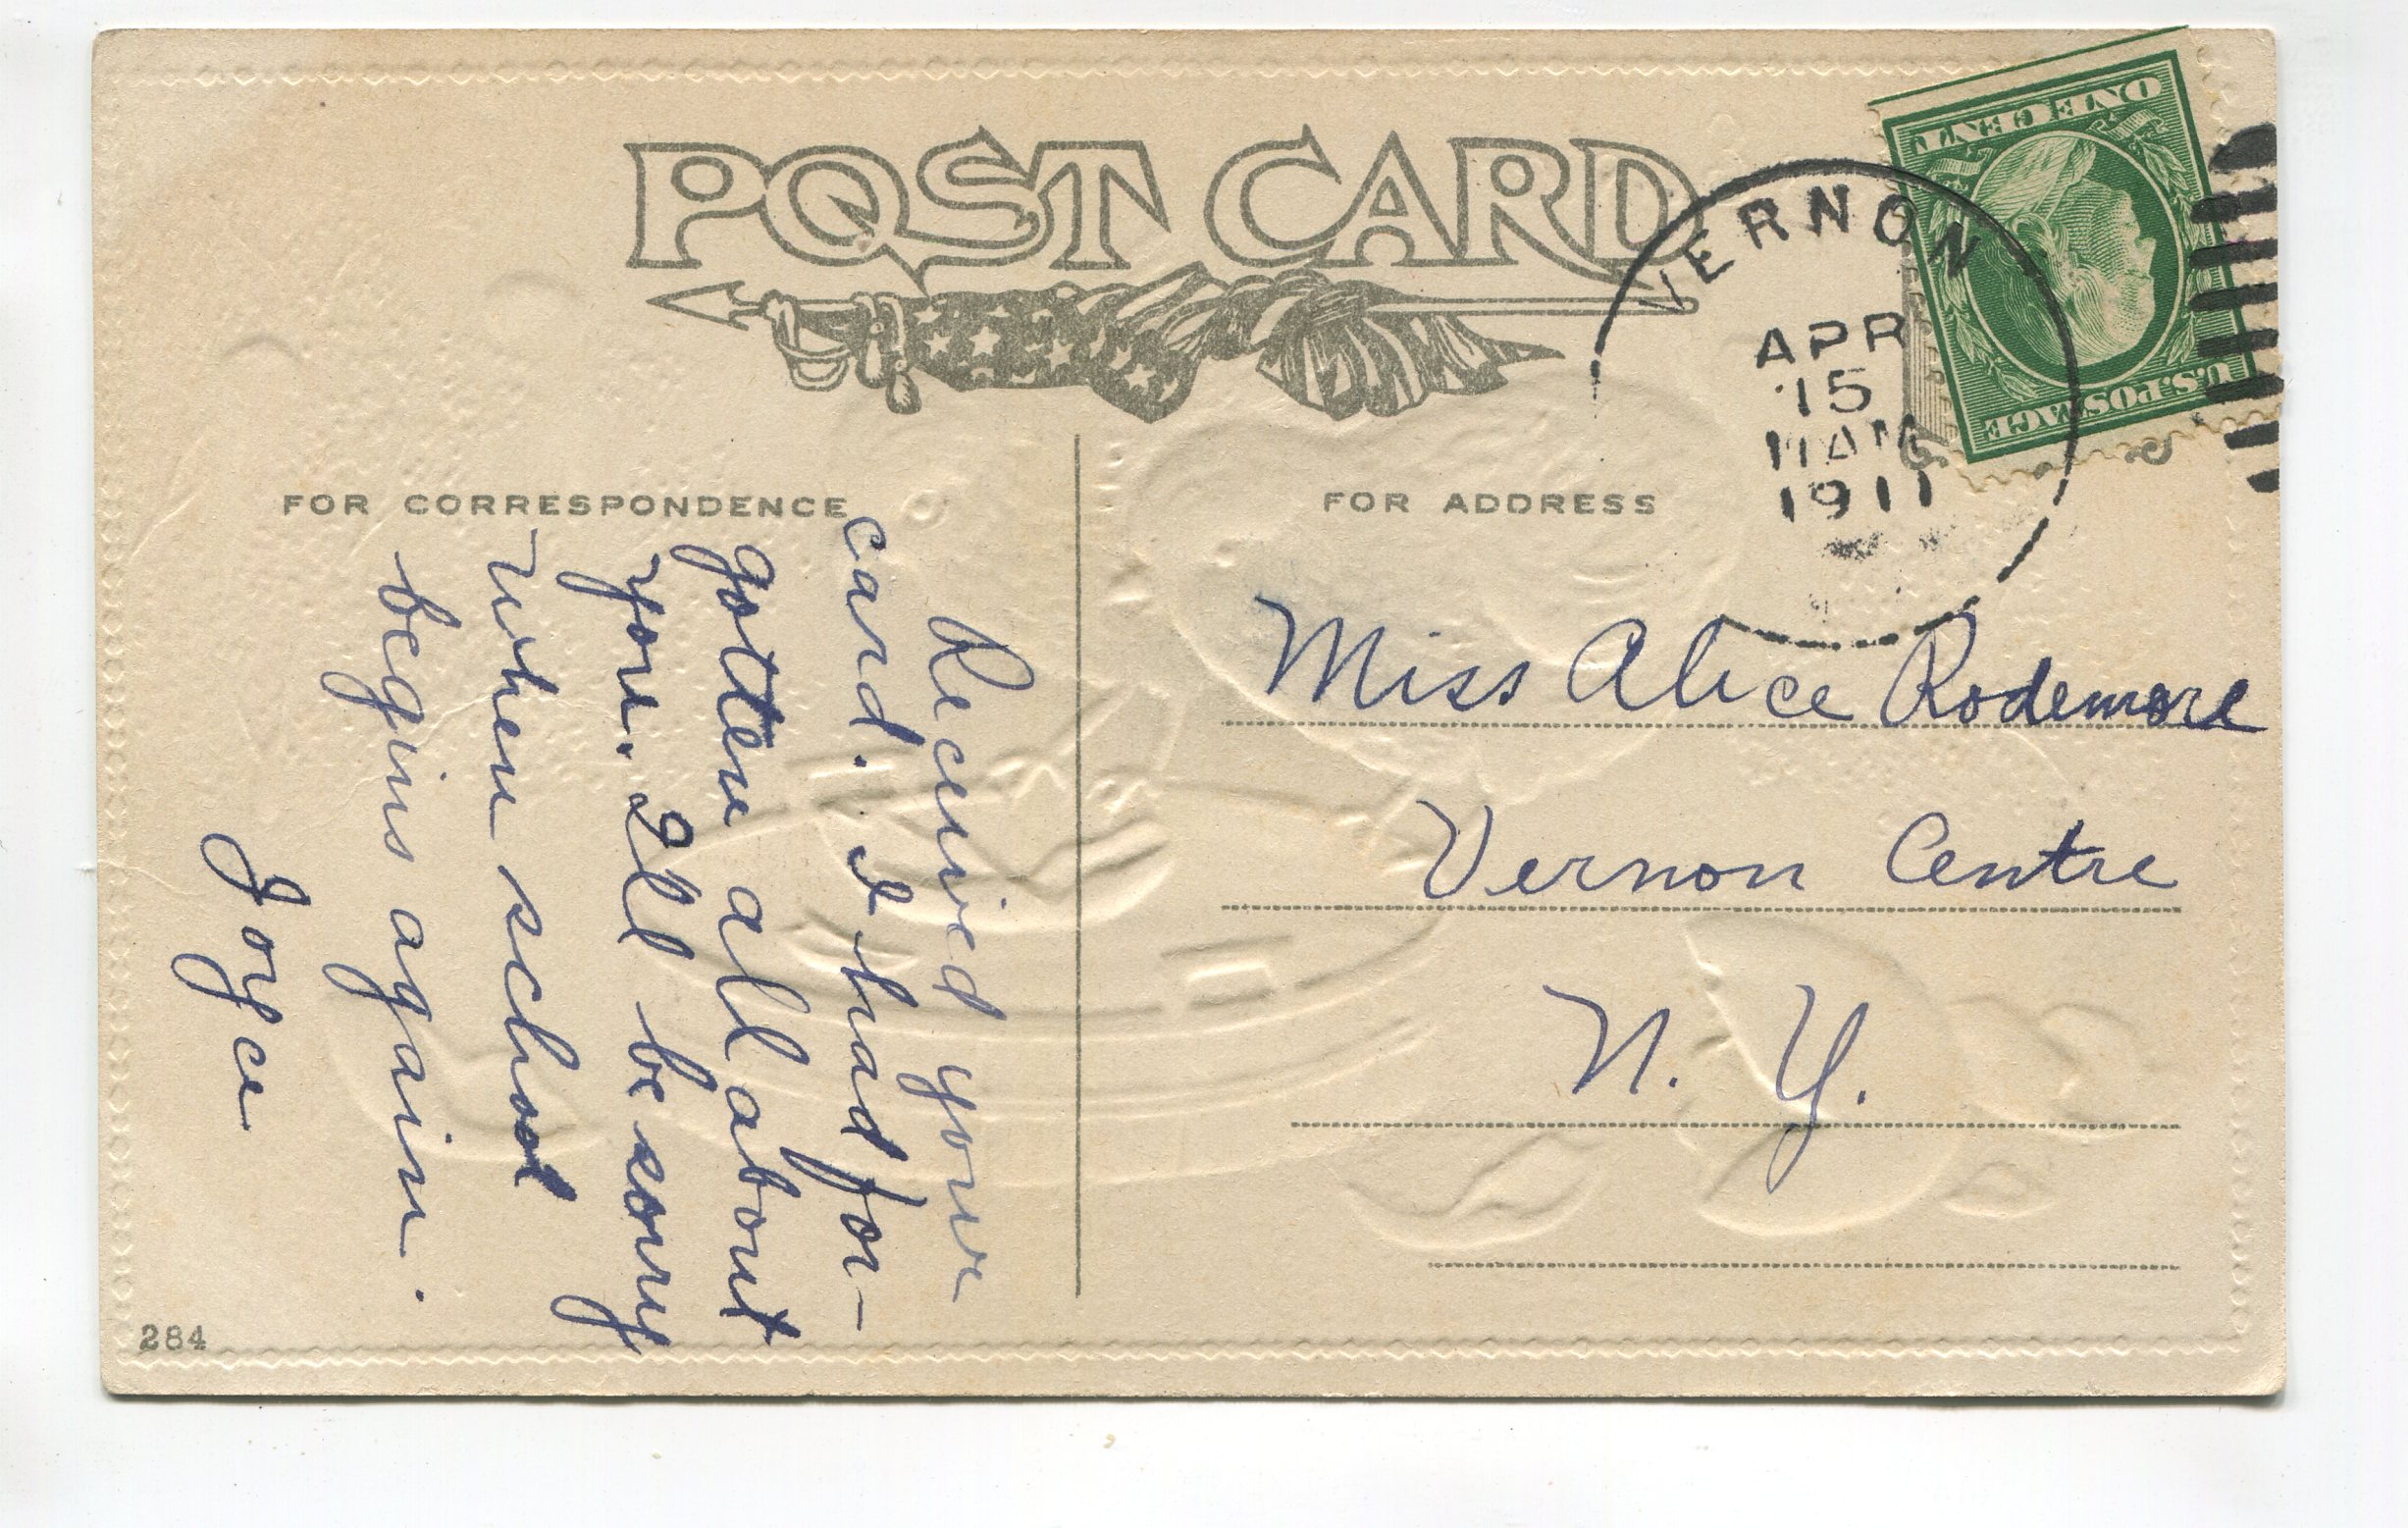 POST CARD
VERNON
APR
15
11 AM
1911
ONE CENT
U.S. POSTAGE
FOR CORRESPONDENCE
FOR ADDRESS
Received your
card. I had for-
gotten all about
you. Ill be sorry
when school
begins again.
Joyce
Miss Alice Rodemore
Vernon Centre
N. Y.
284